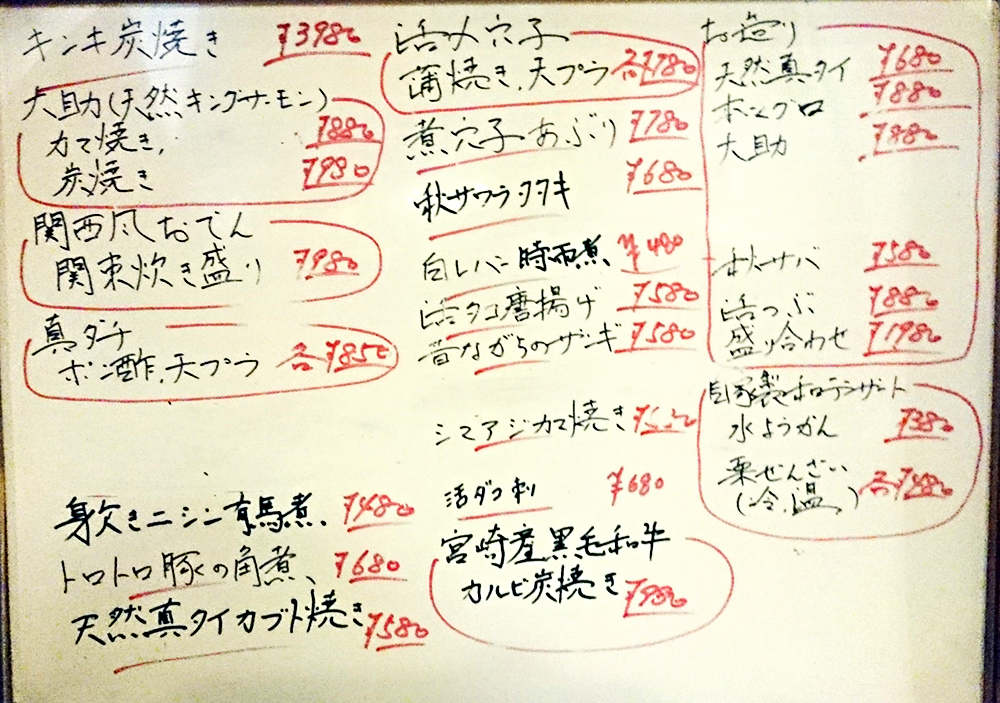 キンキ炭焼き ¥3980
大助(天然キングサーモン)
カマ焼き, ¥880
炭焼き ¥980
関西風おでん
関東炊き盛り ¥980
真ダチ
ポン酢,天プラ 各¥850
身欠きニシン有馬煮、 ¥480
トロトロ豚の角煮、 ¥680
天然真タイカブト焼き ¥580
活〆穴子
蒲焼き,天プラ 各¥780
煮穴子あぶり ¥780
秋サワラタタキ ¥680
白レバー時雨煮 ¥480
活タコ唐揚げ ¥580
昔ながらのザンギ ¥580
シマアジカマ焼き
活ダコ刺 ¥680
宮崎産黒毛和牛
カルビ炭焼き ¥980
お造り
天然真タイ ¥680
本マグロ ¥880
大助 ¥880
秋サバ ¥580
活つぶ ¥880
盛り合わせ ¥1980
自家製和デザート
水ようかん ¥380
栗ぜんざい
(冷,温) 各¥480